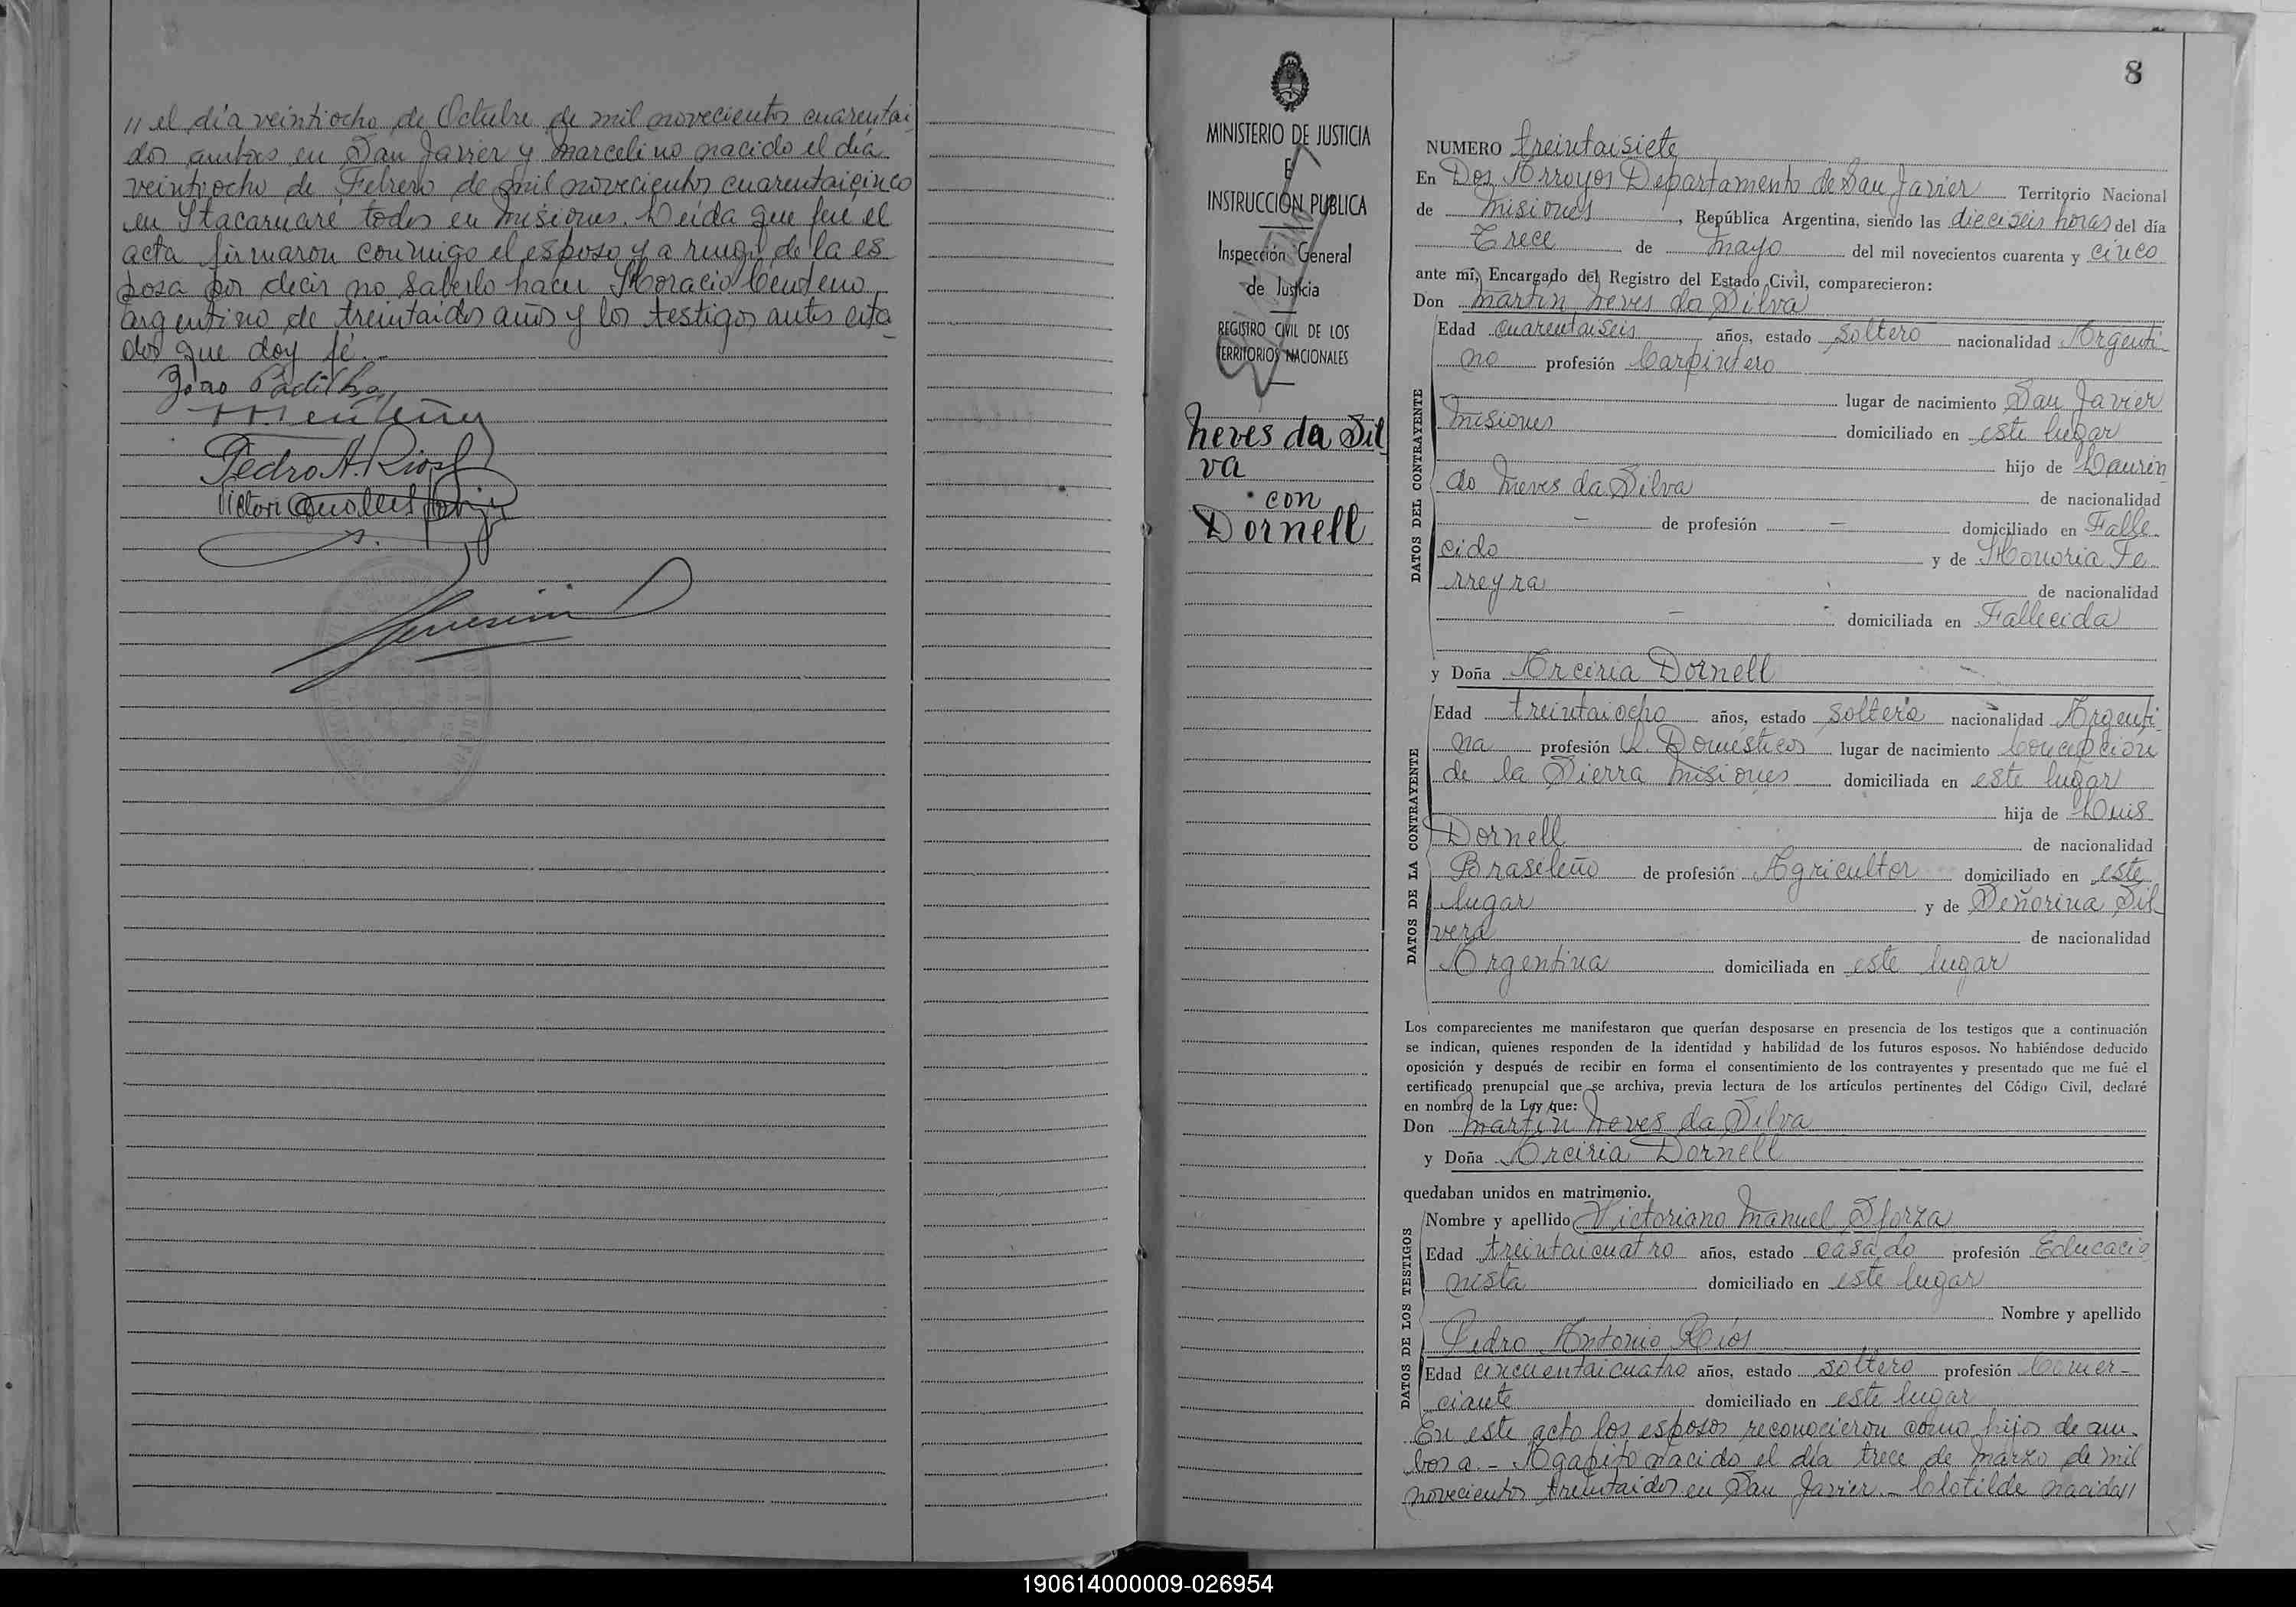 // el día veintiocho de Octubre de mil novecientos cuarentai
dos ambos en San Javier y Marcelino nacido el día
veintiocho de Febrero de mil novecientos cuarentaicinco
en Itacaruaré todos en Misiones. Leída que fué el
acta firmaron conmigo el esposo y a ruego de la es
posa por decir no saberlo hacer Horacio Centeno
argentino de treintaidos años y los testigos antes cita
dos que doy fé.-
João Padilha
HCenteno
Pedro A. Rios
8
MINISTERIO DE JUSTICIA
E
INSTRUCCIÓN PUBLICA
Inspección General
de Justicia
REGISTRO CIVIL DE LOS
TERRITORIOS NACIONALES
Neves da Sil
va
con
Dornell
NUMERO treintaisiete
En Dos Arroyos Departamento de San Javier Territorio Nacional
de Misiones, República Argentina, siendo las dieciseis horas del día
Trece de Mayo del mil novecientos cuarenta y cinco
ante mí, Encargado del Registro del Estado Civil, comparecieron:
Don Martin Neves da Silva
DATOS DEL CONTRAYENTE
Edad cuarentaiseis años, estado Soltero nacionalidad Argenti-
no profesión Carpintero
lugar de nacimiento San Javier
Misiones domiciliado en este lugar
hijo de Laurin
do Neves da Silva de nacionalidad
— de profesión — domiciliado en Falle-
cido y de Honoria Fe-
rreyra de nacionalidad
— domiciliada en Fallecida
y Doña Arciria Dornell
DATOS DE LA CONTRAYENTE
Edad treintaiocho años, estado Soltera nacionalidad Argenti-
na profesión Q. Domésticos lugar de nacimiento Concepcion
de la Sierra Misiones domiciliada en este lugar
hija de Luis
Dornell de nacionalidad
Brasileño de profesión Agricultor domiciliado en este
lugar y de Señorina Sil
vera de nacionalidad
Argentina domiciliada en este lugar
Los comparecientes me manifestaron que querían desposarse en presencia de los testigos que a continuación
se indican, quienes responden de la identidad y habilidad de los futuros esposos. No habiéndose deducido
oposición y después de recibir en forma el consentimiento de los contrayentes y presentado que me fué el
certificado prenupcial que se archiva, previa lectura de los artículos pertinentes del Código Civil, declaré
en nombre de la Ley que:
Don Martin Neves da Silva
y Doña Arciria Dornell
quedaban unidos en matrimonio.
DATOS DE LOS TESTIGOS
Nombre y apellido Victoriano Manuel Sforza
Edad treintaicuatro años, estado casado profesión Educacio
nista domiciliado en este lugar
Nombre y apellido
Pedro Antonio Ríos
Edad cincuentaicuatro años, estado soltero profesión Comer-
ciante domiciliado en este lugar
En este acto los esposos reconocieron como hijos de am-
bos a.- Agapito nacido el día trece de Marzo de mil
novecientos treintaidos en San Javier.- Clotilde nacida//
190614000009-026954